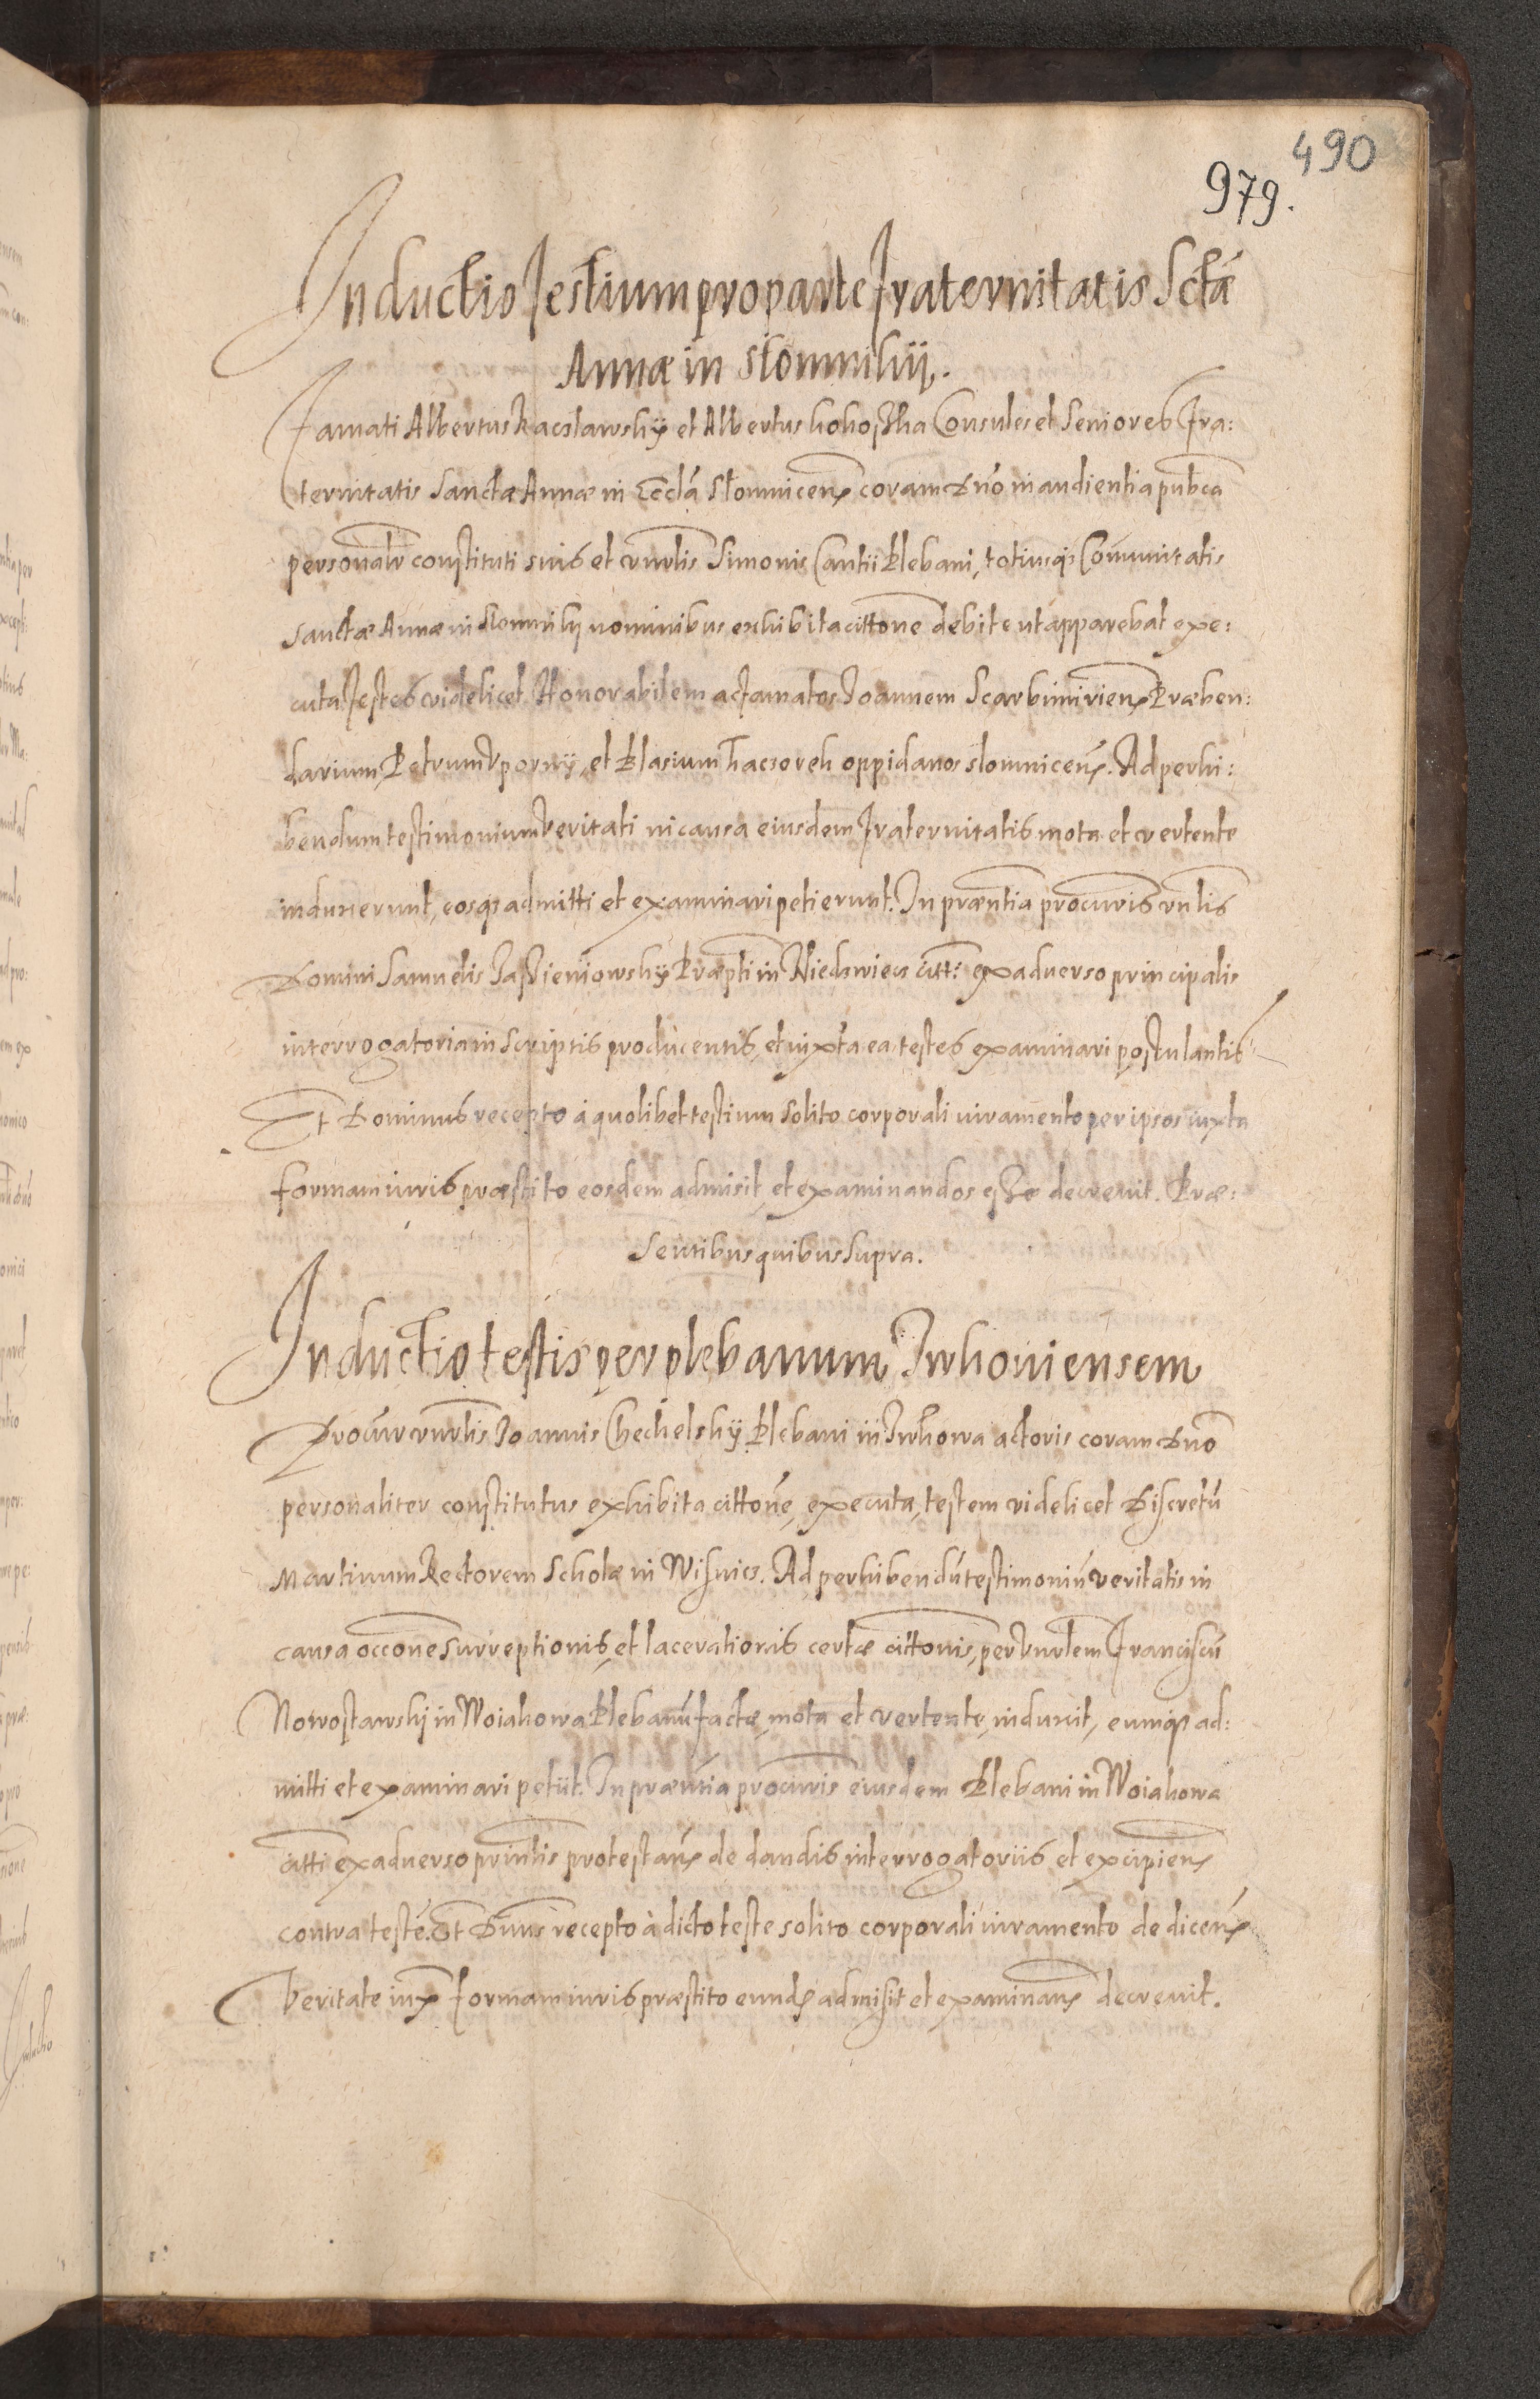 490
979.
Inductio Testium pro parte Fraternitatis Sctæ
Annæ in Słomniky.
Famati Albertus Raczławsky et Albertus kokoszka Consules et Seniores Fra:
ternitatis Sanctæ Annæ in Eccla Słomnicen coram Dno in audientia pubca
personalr constituti suis et vnrlis Simonis Cantii Plebani, totiusq Comunitatis
Sanctæ Annæ in Słomniky nominibus exhibita cittone debite ut apparebat exe:
cuta testes videlicet Honorabilem ac famatos Joannem Scarbimirien Præben:
darium, Petrum Vporny, et Blasium oppidanos słomnicen. Ad perhi:
bendum testimonium veritati in causa eiusdem Fraternitatis mota et vertente
induxerunt, eosq admitti et examinari petierunt. In præntia procuris vnlis
Domini Samuelis Præpti in Niedzwiecz citt: ex aduerso principalis
interrogatoria in scriptis producentis, et iuxta ea testes examinari postulantis
Et Dominus recepto à quolibet testium solito corporali iuramento per ipsos iuxta
formam iuris præstito eosdem admisit, et examinandos esse decreuit. Præ:
sentibus quibus supra.
Inductio testis per plebanum Irkoviensem
Procur vnrlis Joannis Chechelsky Plebani in actoris coram Dno
personaliter constitutus exhibita cittone, executa, testem videlicet Discretu
Martinum Rectorem Scholæ in Wisnicz. Ad perhibendu testimoniu veritatis in
causa occone surreptionis, et lacerationis certæ cittonis, per Vnrlem Franciscu
in Woiakowa Plebanu factæ, mota et vertente, induxit, eumq ad:
mitti et examinari petiit. In præntia procuris eiusdem Plebani in Woiakowa
citti ex aduerso prinlis protestan de dandis interrogatoriis et excipien
contra teste. Et Dnus recepto à dicto teste solito corporali iuramento de dicen
veritate iux formam iuris præstito eund admisit et examinan decreuit.